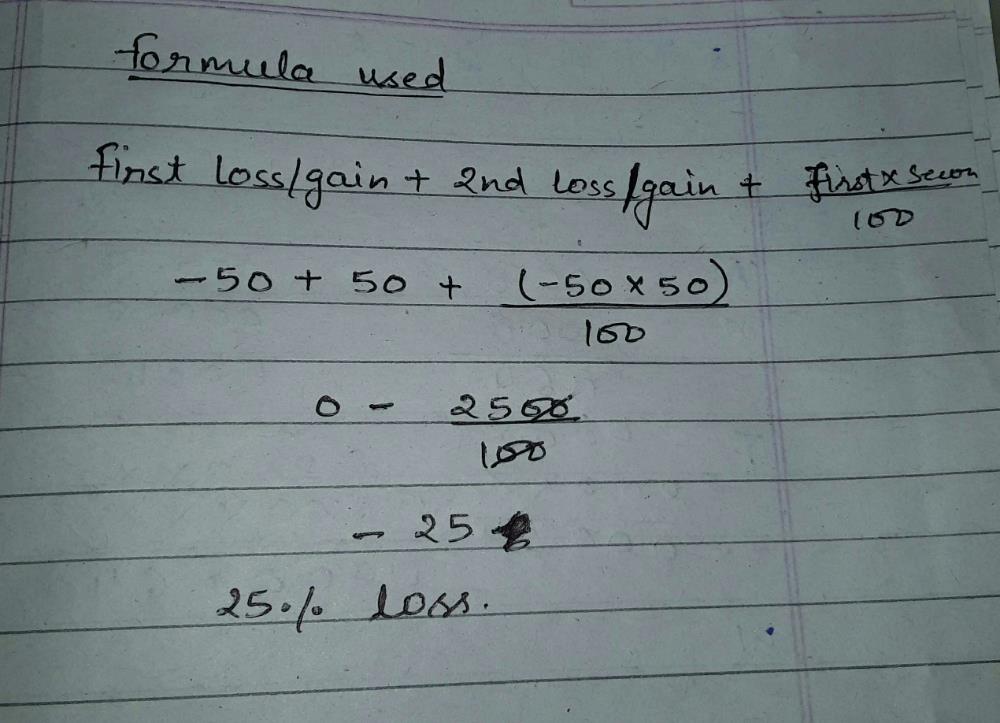 formula used
first loss/gain + 2nd loss/gain + first x secon / 100
-50 + 50 + (-50 x 50) / 100
0 - 2500 / 100
- 25
25% loss.